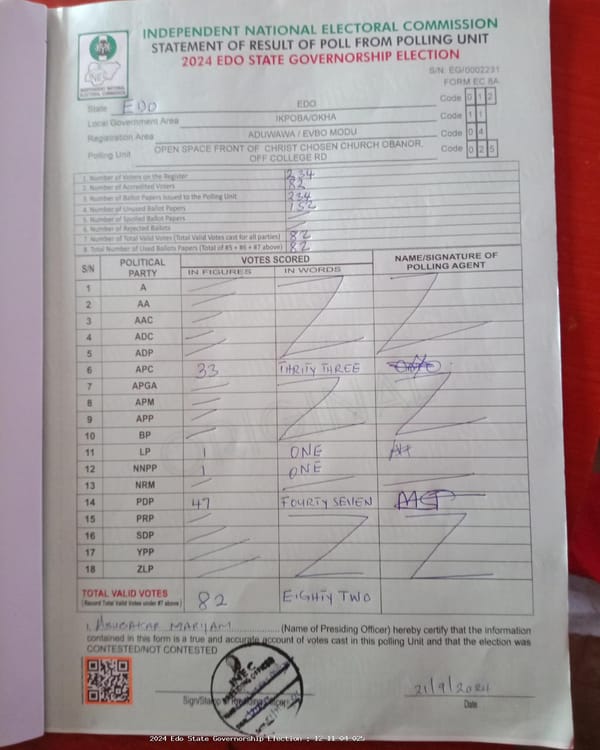 INDEPENDENT NATIONAL ELECTORAL COMMISSION
STATEMENT OF RESULT OF POLL FROM POLLING UNIT
2024 EDO STATE GOVERNORSHIP ELECTION
INEC
INDEPENDENT NATIONAL ELECTORAL COMMISSION
S/N: EG/0002231
FORM EC 8A
State EDO EDO Code 0 1 2
Local Government Area IKPOBA/OKHA Code 1 1
Registration Area ADUWAWA / EVBO MODU Code 0 4
Polling Unit OPEN SPACE FRONT OF CHRIST CHOSEN CHURCH OBANOR, OFF COLLEGE RD Code 0 2 5
1. Number of Voters on the Register 234
2. Number of Accredited Voters 82
3. Number of Ballot Papers Issued to the Polling Unit 234
4. Number of Unused Ballot Papers 152
5. Number of Spoiled Ballot Papers
6. Number of Rejected Ballots
7. Number of Total Valid Votes (Total Valid Votes cast for all parties) 82
8. Total Number of Used Ballots Papers (Total of #5 + #6 + #7 above) 82
S/N POLITICAL PARTY VOTES SCORED NAME/SIGNATURE OF POLLING AGENT
IN FIGURES IN WORDS
1 A
2 AA
3 AAC
4 ADC
5 ADP
6 APC 33 THRITY THREE
7 APGA
8 APM
9 APP
10 BP
11 LP 1 ONE
12 NNPP 1 ONE
13 NRM
14 PDP 47 FOURTY SEVEN
15 PRP
16 SDP
17 YPP
18 ZLP
TOTAL VALID VOTES 82 EIGHTY TWO
(Record Total Valid Votes under #7 above)
I, ABUBAKAR MARYAM (Name of Presiding Officer) hereby certify that the information
contained in this form is a true and accurate account of votes cast in this polling Unit and that the election was
CONTESTED/NOT CONTESTED
INEC
PRESIDING OFFICER
Sign/Stamp of Presiding Officer
21/9/2024
Date
2024 Edo State Governorship Election : 12-11-04-025